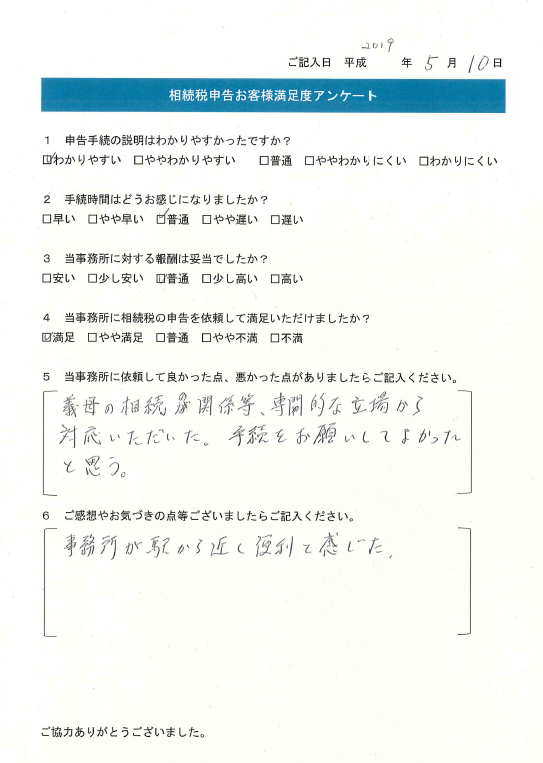 ご記入日 平成 2019 年 5 月 10 日
相続税申告お客様満足度アンケート
1 申告手続の説明はわかりやすかったですか?
☑わかりやすい □ややわかりやすい □普通 □ややわかりにくい □わかりにくい
2 手続時間はどうお感じになりましたか?
□早い □やや早い ☑普通 □やや遅い □遅い
3 当事務所に対する報酬は妥当でしたか?
□安い □少し安い ☑普通 □少し高い □高い
4 当事務所に相続税の申告を依頼して満足いただけましたか?
☑満足 □やや満足 □普通 □やや不満 □不満
5 当事務所に依頼して良かった点、悪かった点がありましたらご記入ください。
義母の相続 関係等、専門的な立場から
対応いただいた。手続をお願いしてよかった
と思う。
6 ご感想やお気づきの点等ございましたらご記入ください。
事務所が駅から近く便利と感じた。
ご協力ありがとうございました。